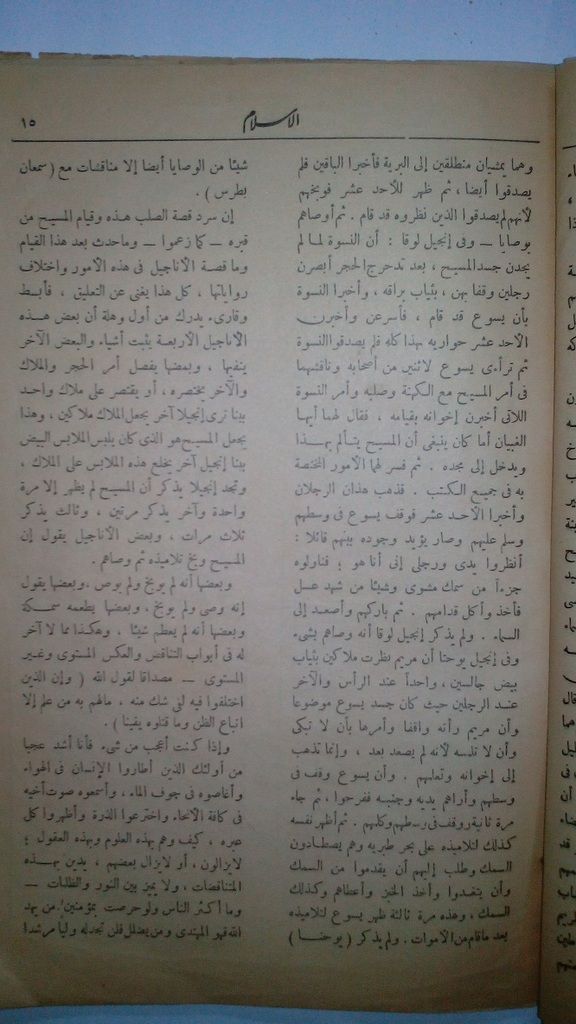 الاسلام
١٥
وهما يمشيان منطلقين إلى البرية فأخبرا الباقين فلم
يصدقوا أيضا ، ثم ظهر للأحد عشر فوبخهم
لأنهم لم يصدقوا الذين نظروه قد قام . ثم أوصاهم
بوصايا — وفى إنجيل لوقا : أن النسوة لما لم
يجدن جسد المسيح ، بعد تدحرج الحجر أبصرن
رجلين وقفا بهن ، بثياب براقه ، وأخبرا النسوة
بأن يسوع قد قام ، فأسرعن وأخبرن
الاحد عشر حواريه بهذا كله فلم يصدقوا النسوة
ثم تراءى يسوع لاثنين من أصحابه وناقشهما
فى أمر المسيح مع الكهنة وصلبه وأمر النسوة
اللاتى أخبرن إخوانه بقيامه ، فقال لهما أيها
الغبيان أما كان ينبغى أن المسيح يتألم بهذا
ويدخل إلى مجده . ثم فسر لهما الأمور المختصة
به فى جميع الكتب . فذهب هذان الرجلان
وأخبرا الاحد عشر فوقف يسوع فى وسطهم
وسلم عليهم وصار يؤيد وجوده بينهم قائلا :
أنظروا يدى ورجلى إنى أنا هو ؛ فناولوه
جزءاً من سمك مشوى وشيئا من شهد عسل
فأخذ وأكل قدامهم . ثم باركهم وأصعد إلى
السماء . ولم يذكر إنجيل لوقا أنه وصاهم بشىء
وفى إنجيل يوحنا أن مريم نظرت ملاكين بثياب
بيض جالسين ، واحداً عند الرأس والآخر
عند الرجلين حيث كان جسد يسوع موضوعا
وأن مريم رأته واقفا وأمرها بأن لا تبكى
وأن لا تلمسه لأنه لم يصعد بعد ، وإنما تذهب
إلى إخوانه وتعلمهم . وأن يسوع وقف فى
وسطهم وأراهم يديه وجنبه ففرحوا ، ثم جاء
مرة ثانية ووقف فى وسطهم وكلهم . ثم أظهر نفسه
كذلك لتلاميذه على بحر طبريه وهم يصطادون
السمك وطلب إليهم أن يقدموا من السمك
وأن يتغدوا وأخذ الخبز وأعطاهم وكذلك
السمك ، وهذه مرة ثالثة ظهر يسوع لتلاميذه
بعد ما قام من الأموات . ولم يذكر ( يوحنا )
شيئا من الوصايا أيضا إلا مناقشات مع ( سمعان
بطرس ) .
إن سرد قصة الصلب هذه وقيام المسيح من
قبره — كما زعموا — وما حدث بعد هذا القيام
وما قصة الأناجيل فى هذه الأمور واختلاف
رواياتها ، كل هذا يغنى عن التعليق ، فأبسط
وقارىء يدرك من أول وهلة أن بعض هذه
الأناجيل الأربعة يثبت أشياء والبعض الآخر
ينفيها ، وبعضها يفصل أمر الحجر والملاك
والآخر يختصره ، أو يقتصر على ملاك واحد
بينا نرى إنجيلا آخر يجعل الملاك ملاكين ، وهذا
يجعل المسيح هو الذى كان يلبس الملابس البيض
بينا إنجيل آخر يخلع هذه الملابس على الملاك ،
وتجد إنجيلا يذكر أن المسيح لم يظهر إلا مرة
واحدة وآخر يذكر مرتين ، وثالث يذكر
ثلاث مرات ، وبعض الأناجيل يقول إن
المسيح وبخ تلاميذه ثم وصاهم .
وبعضها أنه لم يوبخ ولم يوص ، وبعضها يقول
إنه وصى ولم يوبخ ، وبعضها يطعمه سمكة
وبعضها أنه لم يطعم شيئا ، وهكذا مما لا آخر
له فى أبواب التناقض والعكس المستوى وغير
المستوى — مصداقا لقول الله ( وإن الذين
اختلفوا فيه لفى شك منه ، مالهم به من علم إلا
اتباع الظن وما قتلوه يقينا ) .
وإذا كنت أعجب من شىء فأنا أشد عجبا
من أولئك الذين أطاروا الإنسان فى الهواء
وأغاصوه فى جوف الماء ، وأسمعوه صوت أخيه
فى كافة الانحاء واخترعوا الذرة وأظهروا كل
عبره ، كيف وهم بهذه العلوم وبهذه العقول ؛
لا يزالون ، أو لا يزال بعضهم ، يدين بهذه
المتناقضات ، ولا يميز بين النور والظلمات —
وما أكثر الناس ولو حرصت بمؤمنين . من يهد
الله فهو المهتدى ومن يضلل فلن تجد له وليا مرشدا